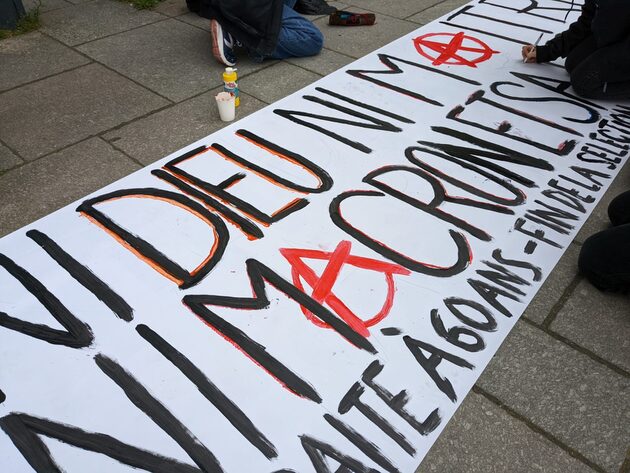 NI DIEU NI MAITR
NI MACRON ET SA
AITE À 60 ANS = FIN DE LA SELECTION